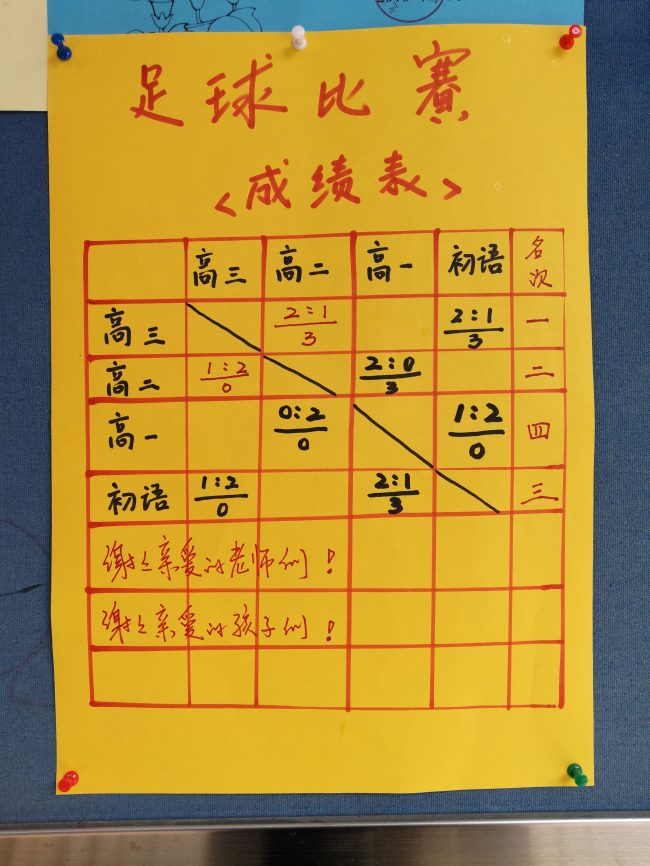 足球比賽
<成绩表>
高三 高二 高一 初语 名次
高三 2:1/3 2:1/3 一
高二 1:2/0 2:0/3 二
高一 0:2/0 1:2/0 四
初语 1:2/0 2:1/3 三
谢谢亲爱的老师们!
谢谢亲爱的孩子们!